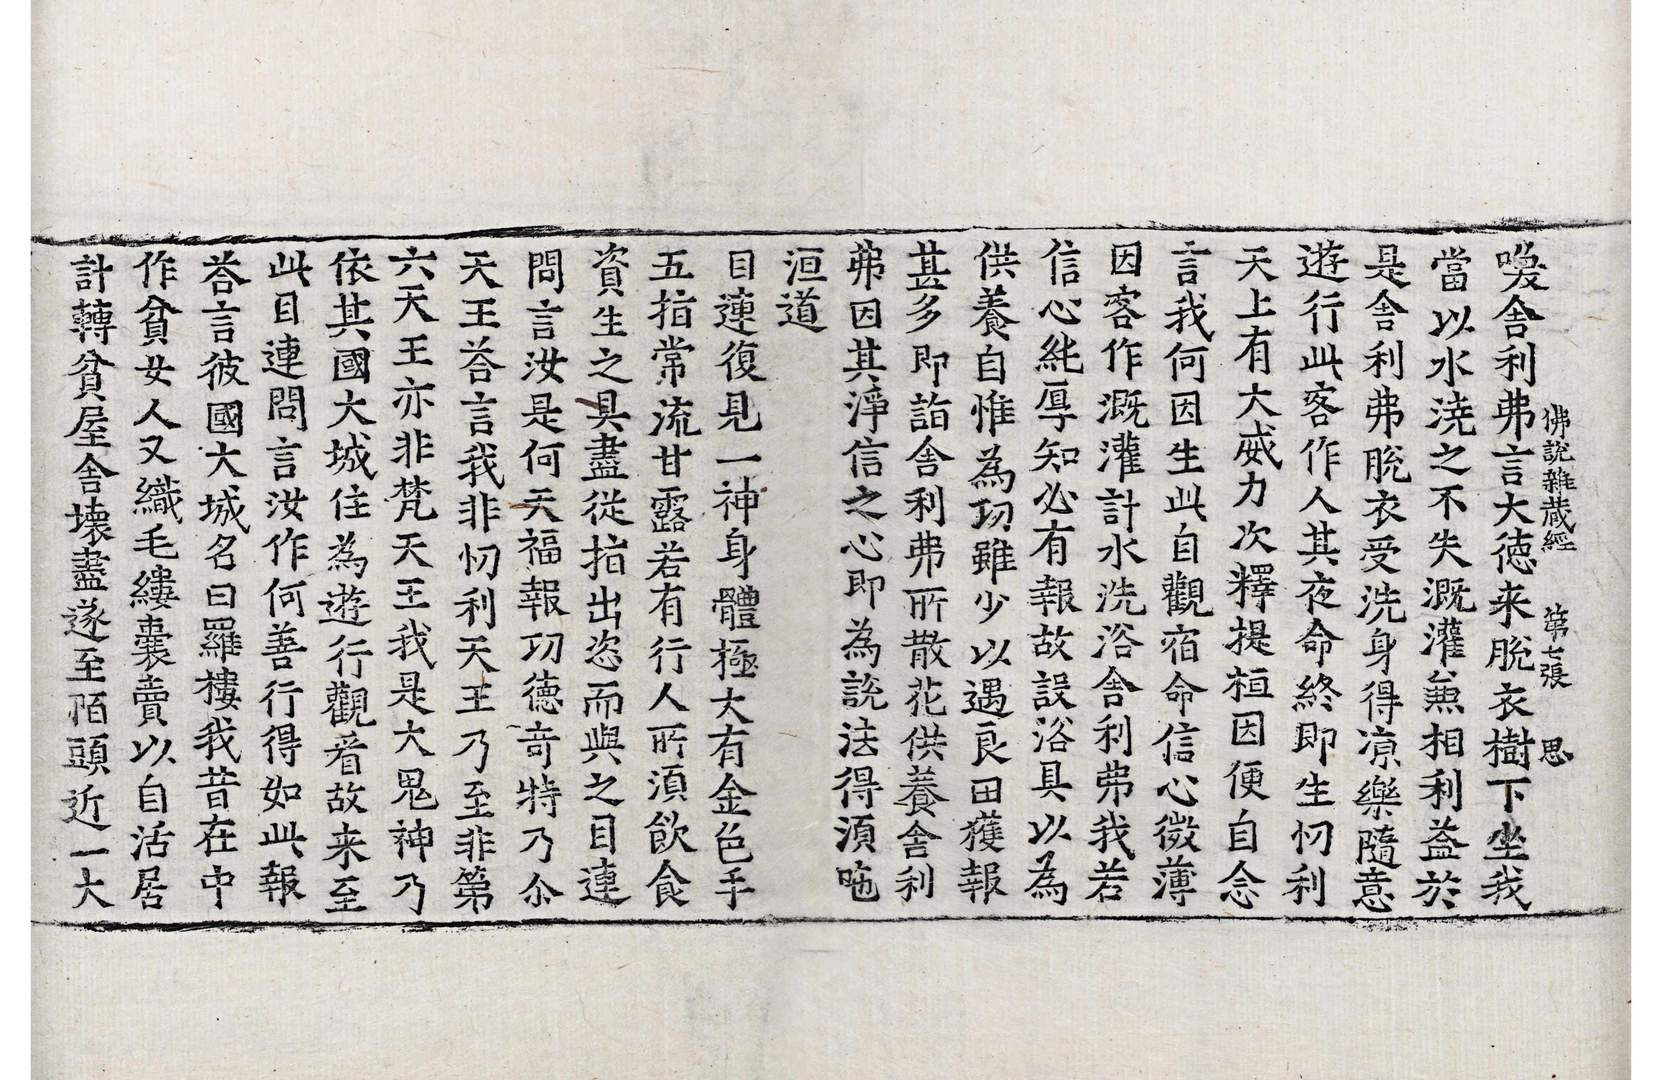 佛說雜蔵經 第七張 思
喚舎利弗言大德来脫衣樹下坐我
當以水澆之不失溉灌兼相利益於
是舎利弗脫衣受洗身得凉樂隨意
遊行此客作人其夜命終即生忉利
天上有大威力次釋提桓因便自念
言我何因生此自觀宿命信心微薄
因客作溉灌計水洗浴舎利弗我若
信心純厚知必有報故設浴具以為
供養自惟為㓛雖少以遇良田獲報
甚多即詣舎利弗所散花供養舎利
弗因其淨信之心即為說法得湏陁
洹道
目連復見一神身體極大有金色手
五指常流甘露若有行人所湏飲食
資生之具盡從指出恣而與之目連
問言汝是何天福報㓛德奇特乃尒
天王荅言我非忉利天王乃至非第
六天王亦非梵天王我是大鬼神乃
依其國大城住為遊行觀看故来至
此目連問言汝作何善行得如此報
荅言彼國大城名曰羅樓我昔在中
作貧女人又織毛縷囊賣以自活居
計轉貧屋舎壊盡遂至陌頭近一大